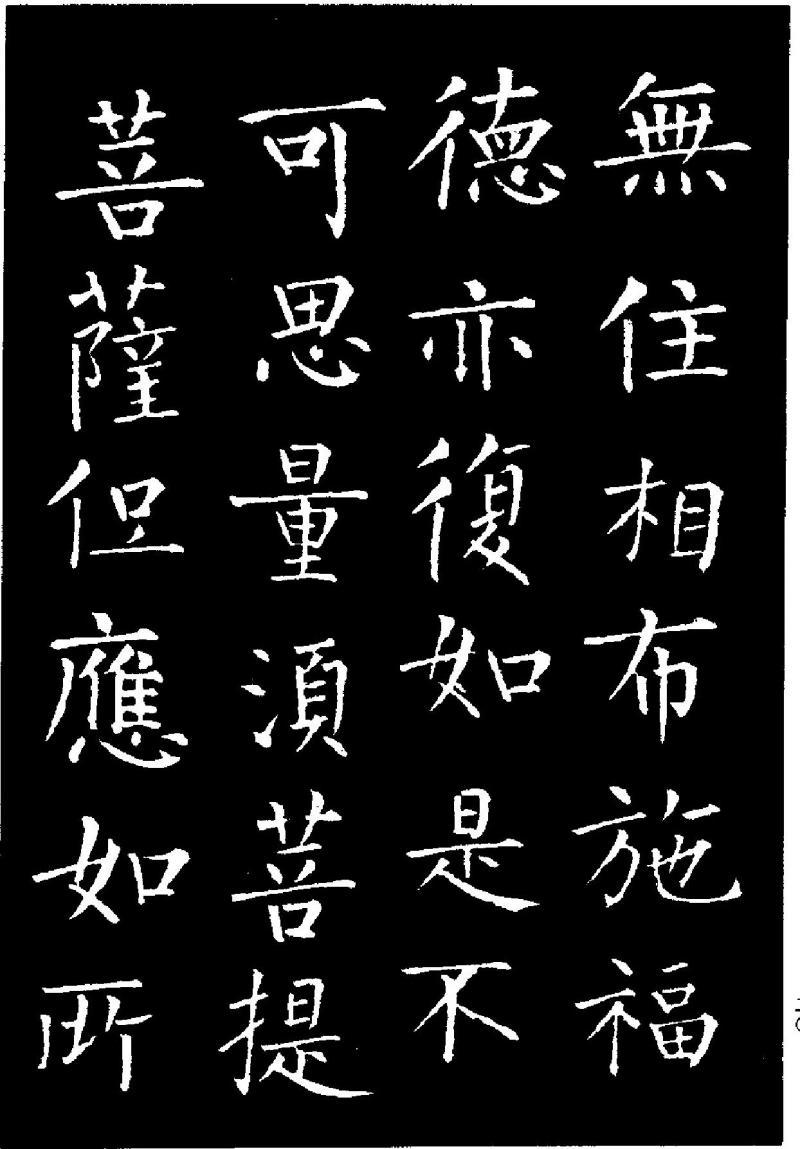 無住相布施福
德亦復如是不
可思量須菩提
菩薩但應如所
二〇